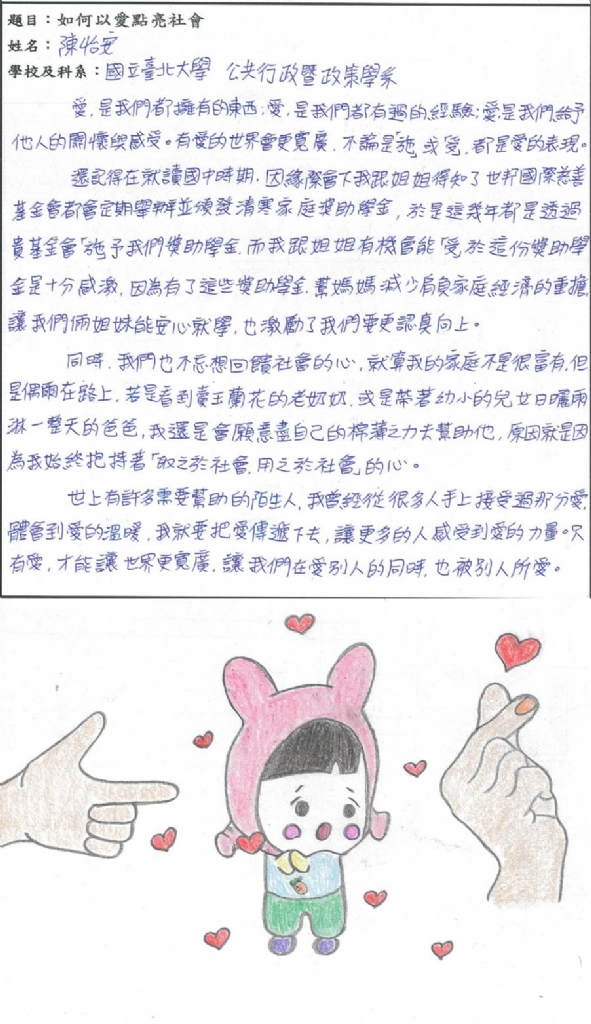 題目：如何以愛點亮社會
姓名：陳怡安
學校及科系：國立臺北大學 公共行政暨政策學系
愛，是我們都擁有的東西；愛，是我們都有過的經驗；愛，是我們給予
他人的關懷與感受。有愛的世界會更寬廣，不論是「施」或「受」，都是愛的表現。
還記得在就讀國中時期，因緣際會下我跟姐姐得知了世邦國際慈善
基金會都會定期舉辦並頒發清寒家庭獎助學金，於是這幾年都是透過
貴基金會「施」予我們獎助學金，而我跟姐姐有機會能「受」於這份獎助學
金是十分感激，因為有了這些獎助學金，幫媽媽減少肩負家庭經濟的重擔，
讓我們倆姐妹能安心就學，也激勵了我們要更認真向上。
同時，我們也不忘想回饋社會的心，就算我的家庭不是很富有，但
是偶爾在路上，若是看到賣玉蘭花的老奶奶，或是帶著幼小的兒女日曬雨
淋一整天的爸爸，我還是會願意盡自己的棉薄之力去幫助他，原因就是因
為我始終把持著「取之於社會，用之於社會」的心。
世上有許多需要幫助的陌生人，我曾經從很多人手上接受過那分愛，
體會到愛的溫暖，我就要把愛傳遞下去，讓更多的人感受到愛的力量。只
有愛，才能讓世界更寬廣，讓我們在愛別人的同時，也被別人所愛。